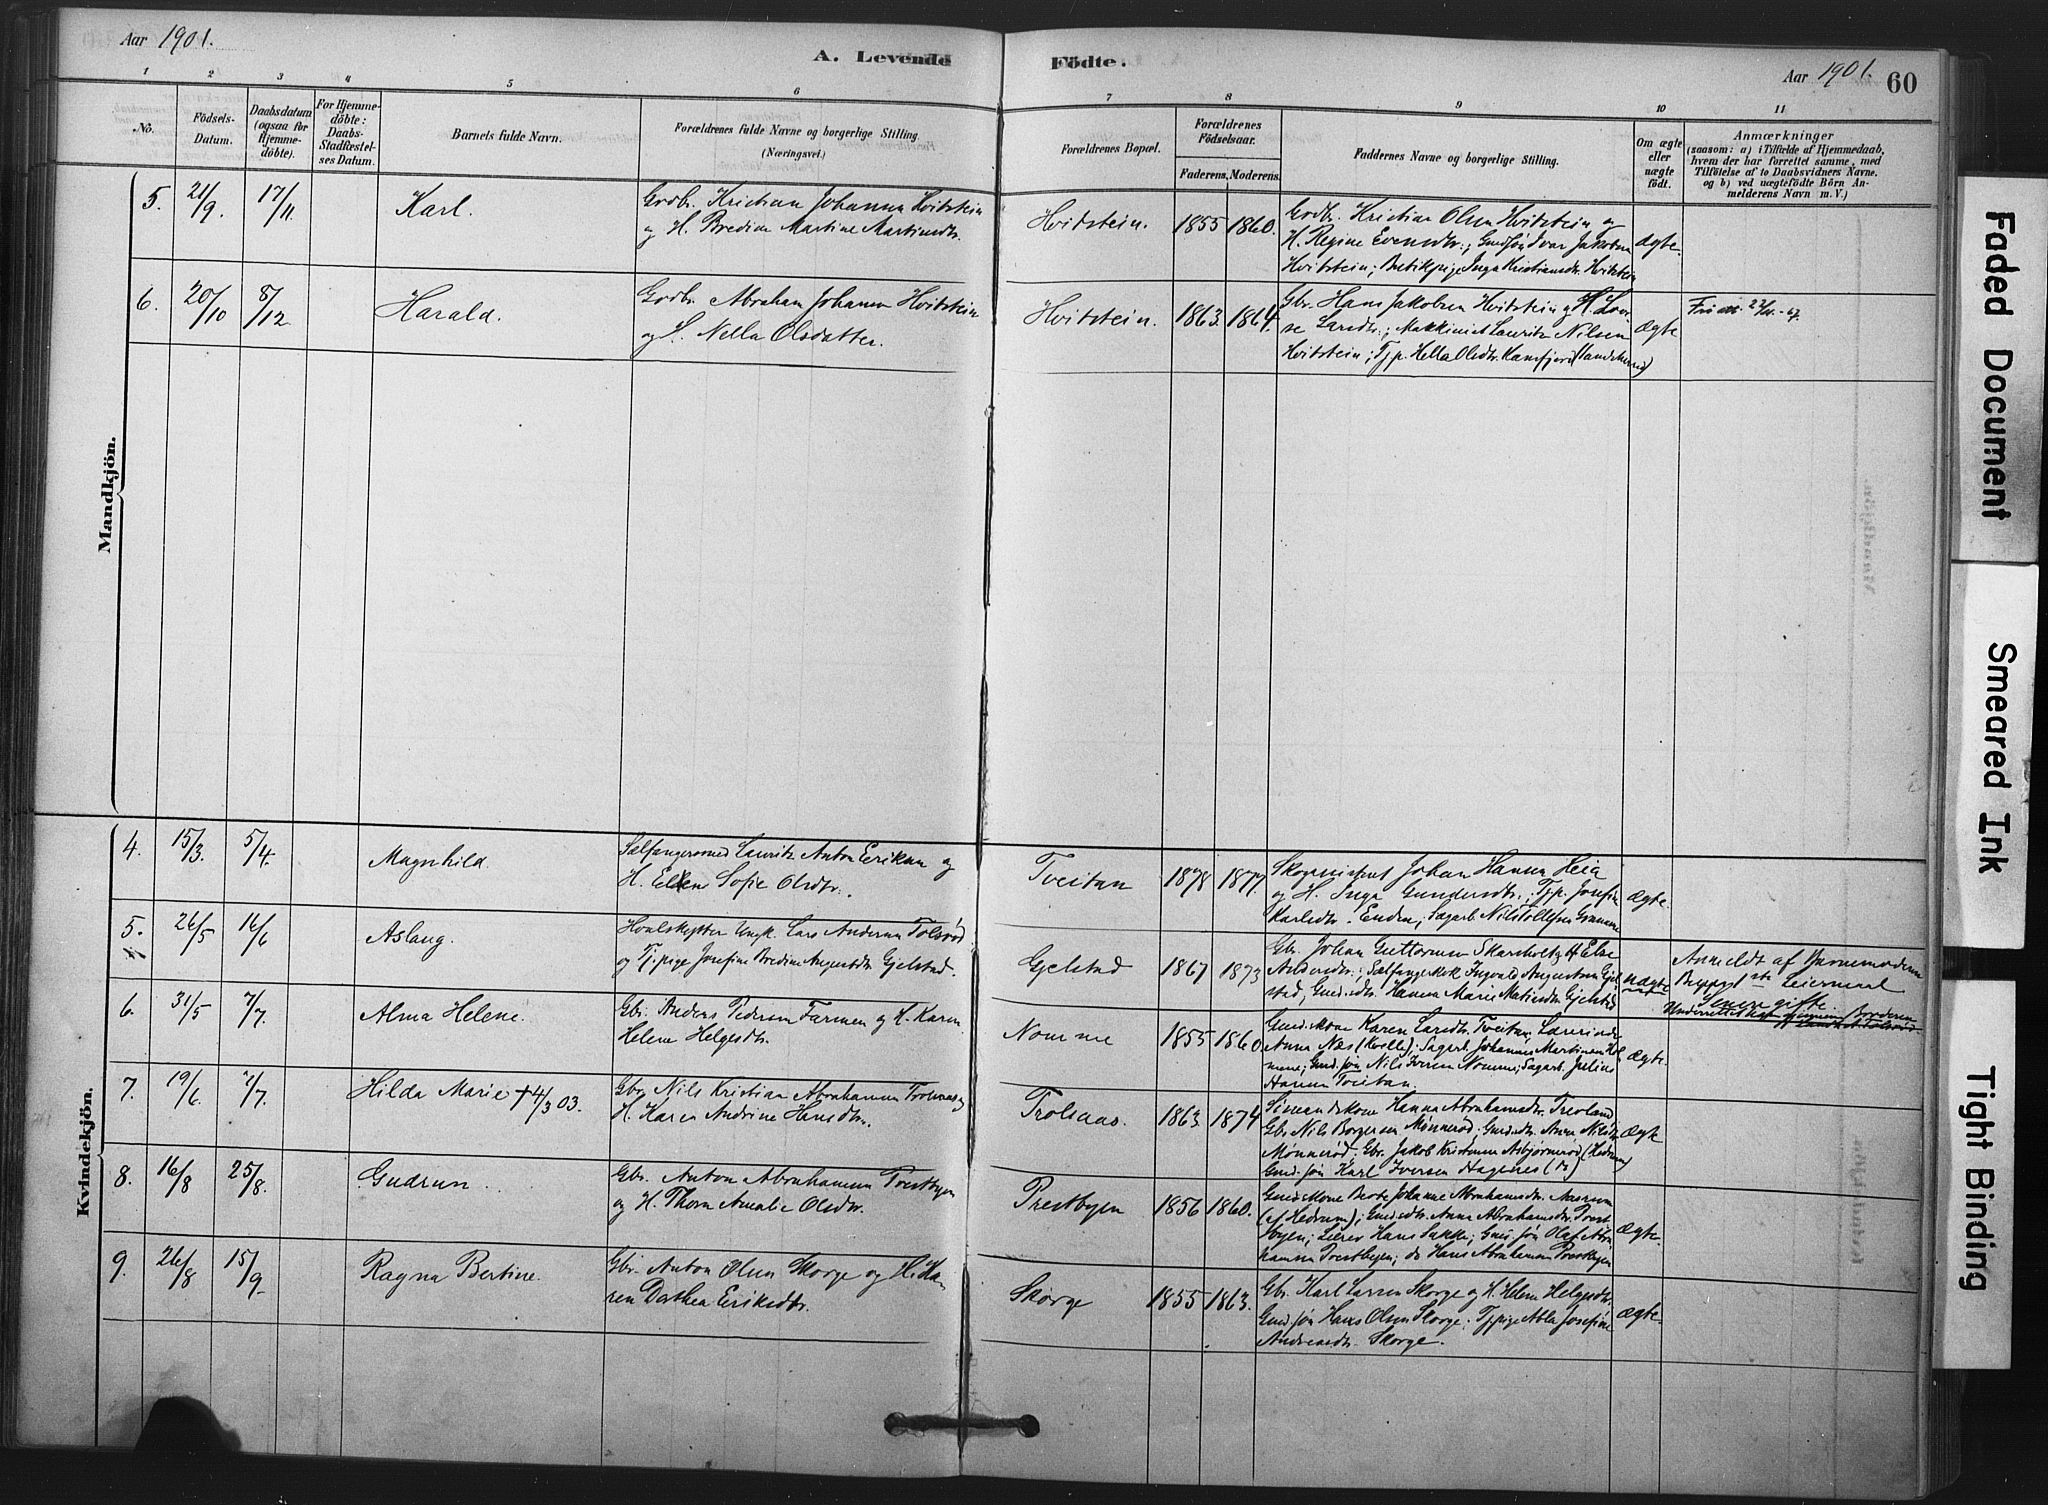 Aar 1901.
A. Levende Födte.
Aar 1901. 60
1 2 3 4 5 6 7 8 9 10 11
No.
Födsels-
Datum.
Daabsdatum
(ogsaa for
Hjemme-
döbte).
For Hjemme-
döbte:
Daabs-
Stadfæstel-
ses Datum.
Barnets fulde Navn.
Forældrenes fulde Navne og borgerlige Stilling.
(Næringsvei.)
Forældrenes Bopæl.
Forældrenes
Födselsaar.
Faderens. Moderens.
Faddernes Navne og borgerlige Stilling.
Om ægte
eller
uægte
födt.
Anmærkninger
(saasom: a) i Tilfælde af Hjemmedaab,
hvem der har forrettet samme, med
Tilföielse af to Daabsvidners Navne,
og b) ved uægtefödte Börn An-
melderens Navn m. V.)
Mandkjön.
5. 21/9. 17/11. Karl.
Grdbr. Kristian Johannsen Hvitstein
og H. Bredine Martine Martinsdtr.
Hvidstein. 1855 1860.
Grdbr. Kristian Olsen Hvitstein og
H. Regine Evensdtr.; Grdsøn Ivar Jakobsen
Hvitstein; Butikpige Inga Kristiansdtr. Hvitstein
ægte.
6. 20/10 8/12. Harald.
Grdbr. Abraham Johansen Hvitstein
og H. Nella Olsdatter.
Hvitstein. 1863. 1864.
Gbr. Hans Jakobsen Hvitstein og H. Lovi-
se Larsdtr.; Maskinist Lauritz Nilsen
Hvitstein; Tj.p. Hella Olsdtr. Kamfjord (Sandeherred)
ægte
Kvindekjön.
4. 15/3. 5/4. Magnhild.
Sælfangermand Lauritz Anton Eriksen og
H. Ellen Sofie Olsdtr.
Tveitan 1878 1877.
Johan Hansen Heia
og H. Inga Gundersdtr.; Tj.p. Josefine
Karlsdtr. Enden; Sagarb. Nils Tollefsen
ægte.
5. 26/5 16/6 Aslaug.
Hvalskytter Ungk. Lars Andersen Tolsrød
og Tj.pige Josefine Bredine Augustsdtr. Gjelstad.
Gjelstad 1867 1873
Gbr. Johan Guttormsen Skarsholt og H. Else
Andersdtr.; Sælfangerkok Ingvald Augustsen Gjel-
stad, Grdmdtr. Hanna Marie Matisdtr. Gjelstad
uægte
Anmeldt af Barnemoderen
Begges 1ste Leiermaal
Senere gifte.
6. 31/5 7/7. Alma Helene.
Gbr. Anders Pedersen Farmen og H. Karen
Helene Helgesdtr.
Nomme 1855 1860.
Grdmskone Karen Larsdtr. Tveitan, Lærerinde
Anna Næs (Kvelle); Sagarb. Johannes Martinsen Hol-
mene; Grdm.søn Nils Iversen Nomme; Sagarb. Julius
Hansen Tveitan.
ægte.
7. 19/6. 7/7. Hilda Marie † 4/3 03.
Gbr. Nils Kristian Abrahamsen Trolsaas og
H. Karen Andrine Hansdtr.
Trolsaas. 1863. 1874
Sømandskone Hanna Abrahamsdtr. Trevland
Gbr. Nils Borgersen Mønnerød; Grdmdtr. Anne Nilsdtr.
Mønnerød; Gbr. Jakob Kristensen Asbjørnrød (Hedrum)
Grdm.søn Karl Iversen Hagenes (ds)
ægte
8. 16/8 25/8. Gudrun
Gbr. Anton Abrahamsen Prestbyen
og H. Thora Amalie Olsdtr.
Prestbyen 1856 1860.
Grdmskone Berte Johanne Abrahamsdtr. Aasrum
(af Hedrum); Grdmdtr. Anna Abrahamsdtr. Prest-
byen; Lærer Hans Bakke; Grdm.søn Olaf Abra-
hamsen Prestbyen; ds Hans Abrahamsen Prestbyen
ægte.
9. 26/8 15/9. Ragna Bertine.
Gbr. Anton Olsen Skorge og H. Ka-
ren Dorthea Eriksdtr.
Skorge 1855 1863.
Gbr. Karl Larsen Skorge og H. Helene Helgesdtr.
Grdm.søn Hans Olsen Skorge; Tj.pige Abla Josefine
Andreasdtr. Skorge.
ægte.
Faded Document
Smeared Ink
Tight Binding